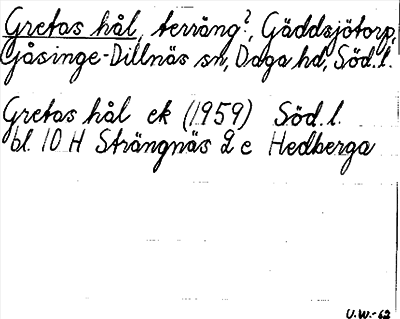 Gretas hål, terräng?, Gäddsjötorp,
Gåsinge-Dillnäs sn, Daga hd, Söd. l.
Gretas hål ek (1959) Söd. l.
bl. 10 H Strängnäs 2 e Hedberga
U.W.-62